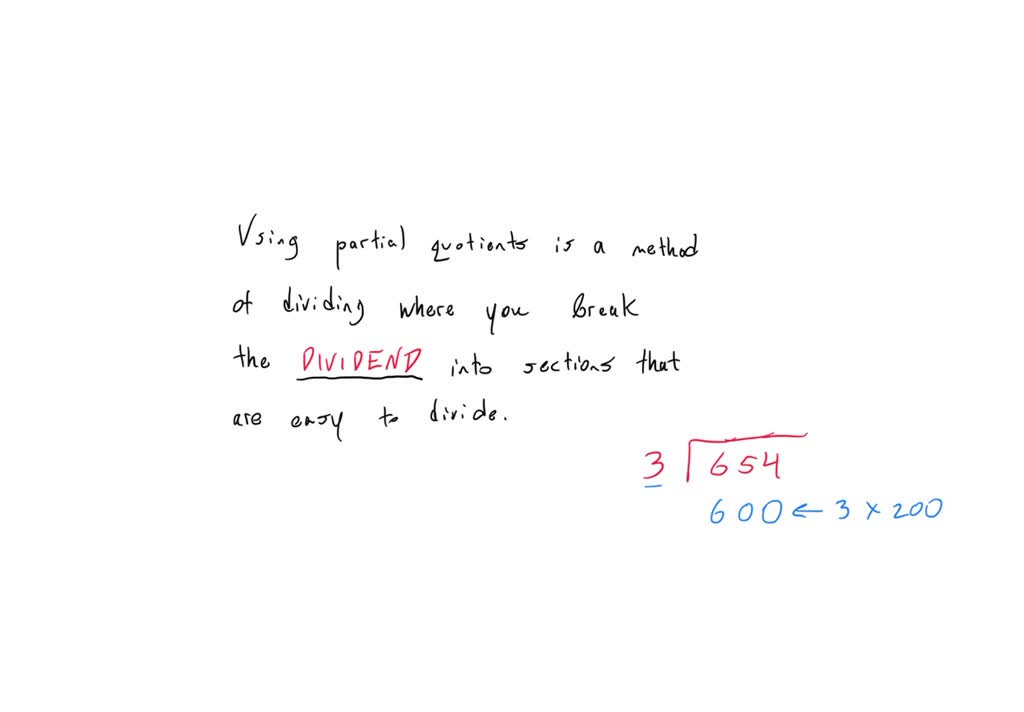 Using partial quotients is a method
of dividing where you break
the DIVIDEND into sections that
are easy to divide.
3 654
600 ← 3 × 200